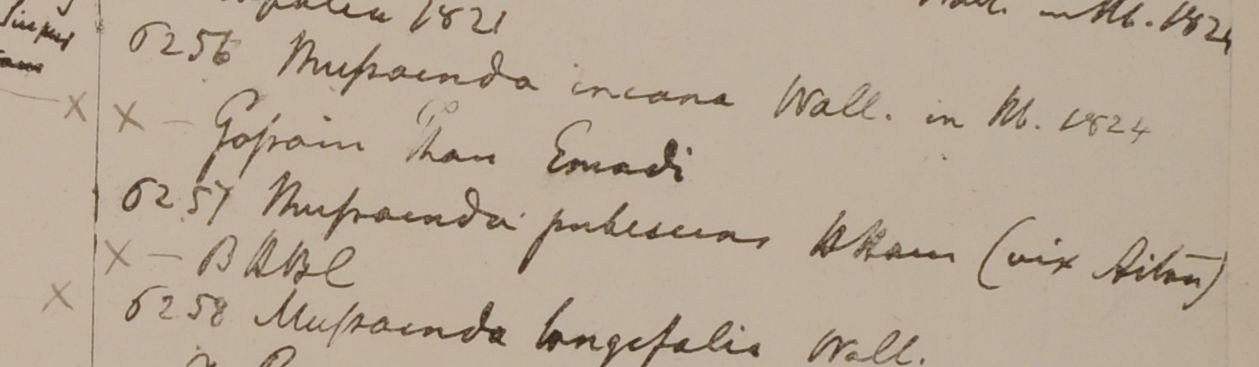 1821
in Hb. 1824
6256 Mussaenda incana Wall. in Hb. 1824
x x – Gossain Than Emodi
6257 Mussaenda pubescens HHam (vix Aiton)
x – B HBC
x 6258 Mussaenda longifolia Wall.